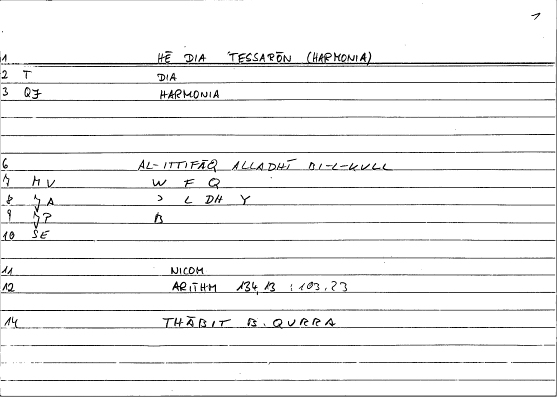 1
1 HĒ DIA TESSARŌN (HARMONIA)
2 T DIA
3 QJ HARMONIA
6 AL-ITTIFĀQ ALLADHĪ BI-L-KULL
7 MV W F Q
8 JA ʾ L DH Y
9 JP B
10 SE
11 NICOM
12 ARITHM 134,13 : 103,23
14 THĀBIT B. QURRA